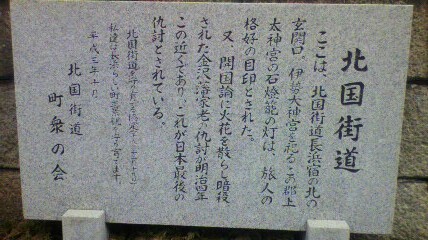 北国街道
ここは、北国街道長浜宿の北の
玄関口。伊勢大神宮を祀るこの郡上
太神宮の石燈籠の灯は、旅人の
格好の目印とされた。
又、開国論に火花を散らし暗殺
された金沢藩家老の仇討が明治四年
この近くであり、これが日本最後の
仇討とされている。
北国街道
平成三年十月
北国街道
町衆の会